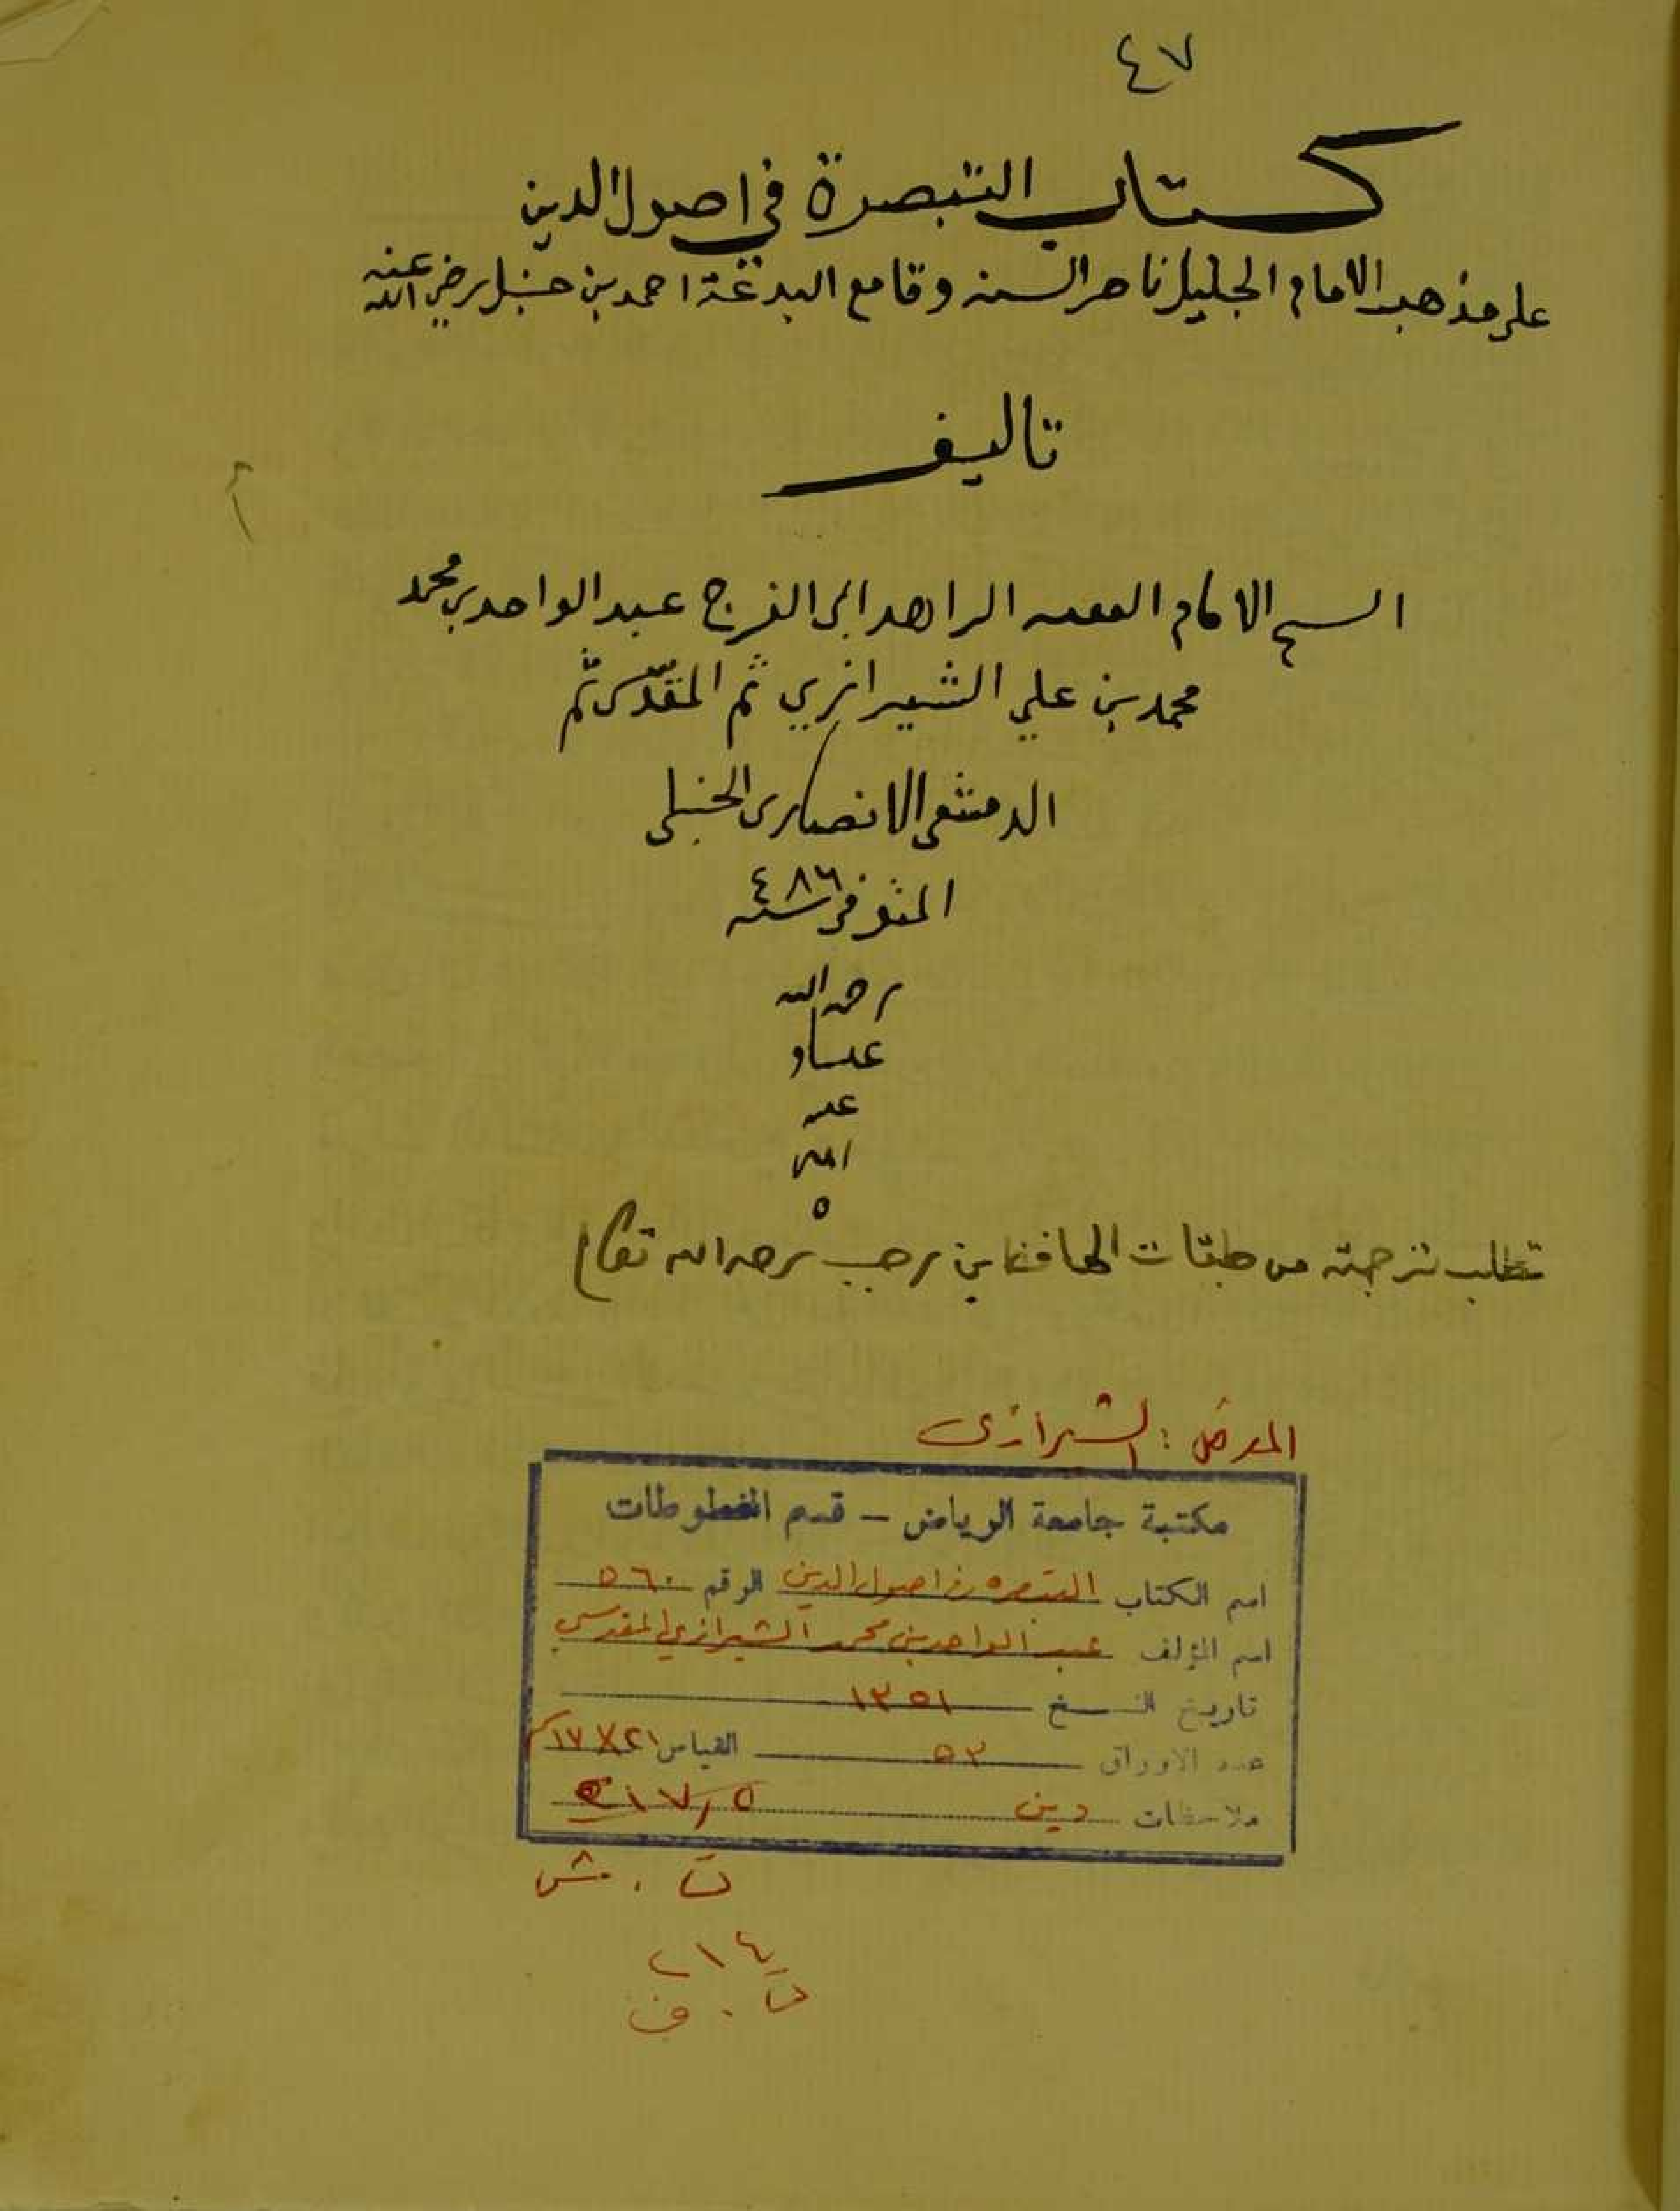 ٤٧
كتاب التبصرة في اصول الدين
على مذهب الامام الجليل ناصر السنه وقامع البدعة احمد بن حنبل رضي الله عنه
تاليف
السح الامام الفقيه الزاهد ابى الفرج عبد الواحد بن محمد
محمد بن علي الشيرازي ثم المقدسى ثم
الدمشقى الانصارى الحنبلى
المتوفى سنه ٤٨٦
رحمه الله
عنه
امين
٥
تطلب ترجمته من طبقات الحافظ ابن رجب رحمه الله تعالى
المدخل : الشيرازى
مكتبة جامعة الرياض - قسم المخطوطات
اسم الكتاب التبصره فى اصول الدين الرقم ٥٦٠
اسم المؤلف عبد الواحد بن محمد الشيرازي المقدسي
تاريخ النسخ ١٣٥١
عدد الاوراق ٥٣ القياس ٢١×١٧
ملاحظات دين ٢١٧/٥
ت . ش
٢١٤